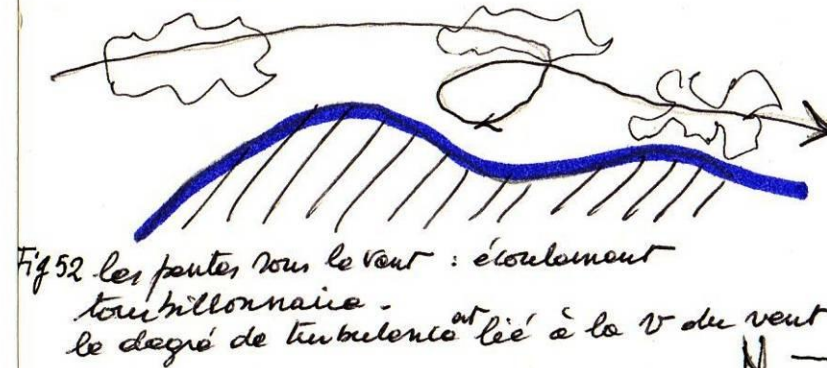 Fig 52 les pentes sous le vent : écoulement
tourbillonnaire.
le degré de turbulence est lié à la V du vent
N